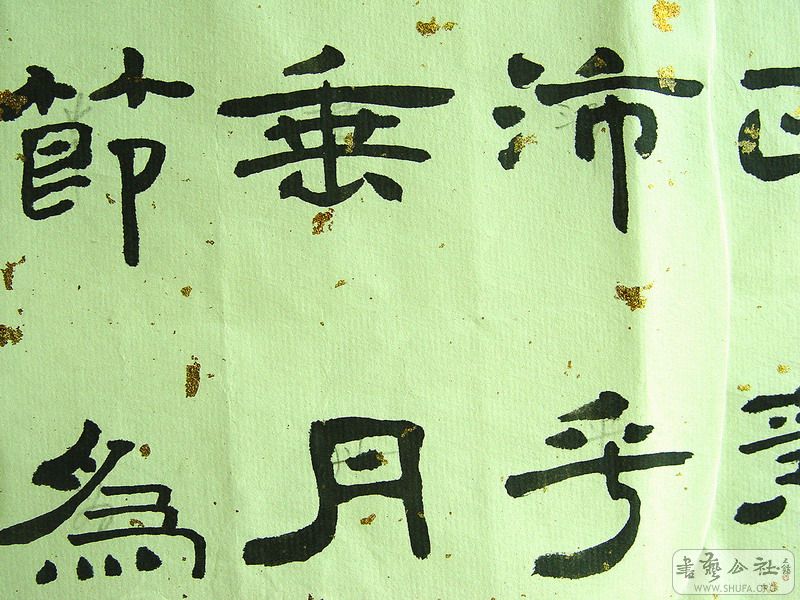 沛乎
垂丹
節為
書藝公社
WWW.SHUFA.ORG